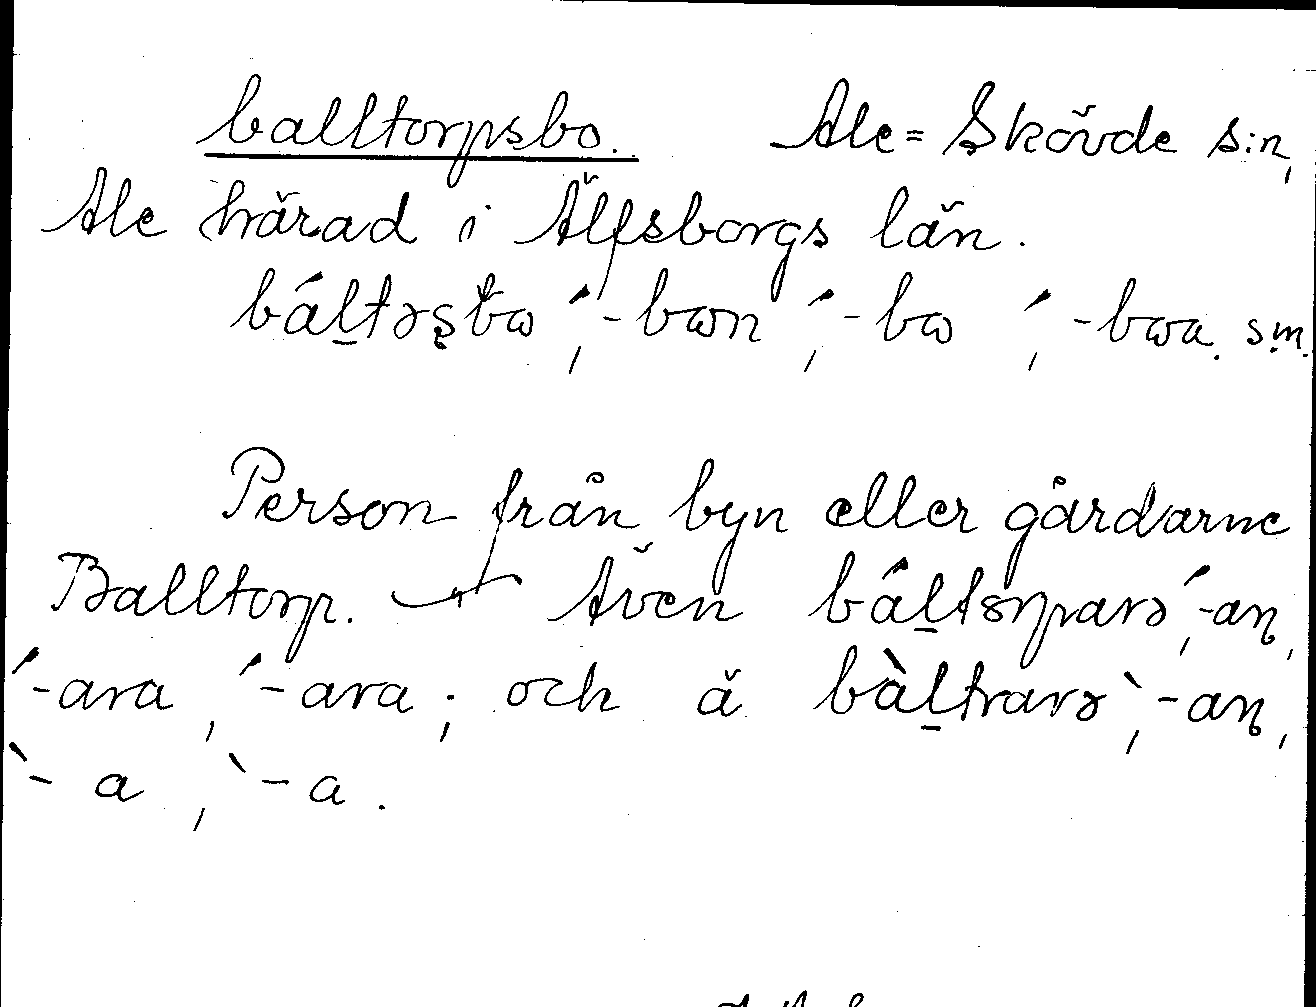 balltorpsbo. Ale = Skövde s:n,
Ale härad i Älfsborgs län.
bál̠tɘʂbɷ ́, -bɷn ́, -bɷ ́, -bɷa. s.m.
Person från byn eller gårdarne
Balltorp. — Även bál̠tɘrparɘ ́, -aɳ,
́-ara, ́-ara; och ä bàl̠trarɘ ̀, -aɳ,
̀-a, ̀-a.